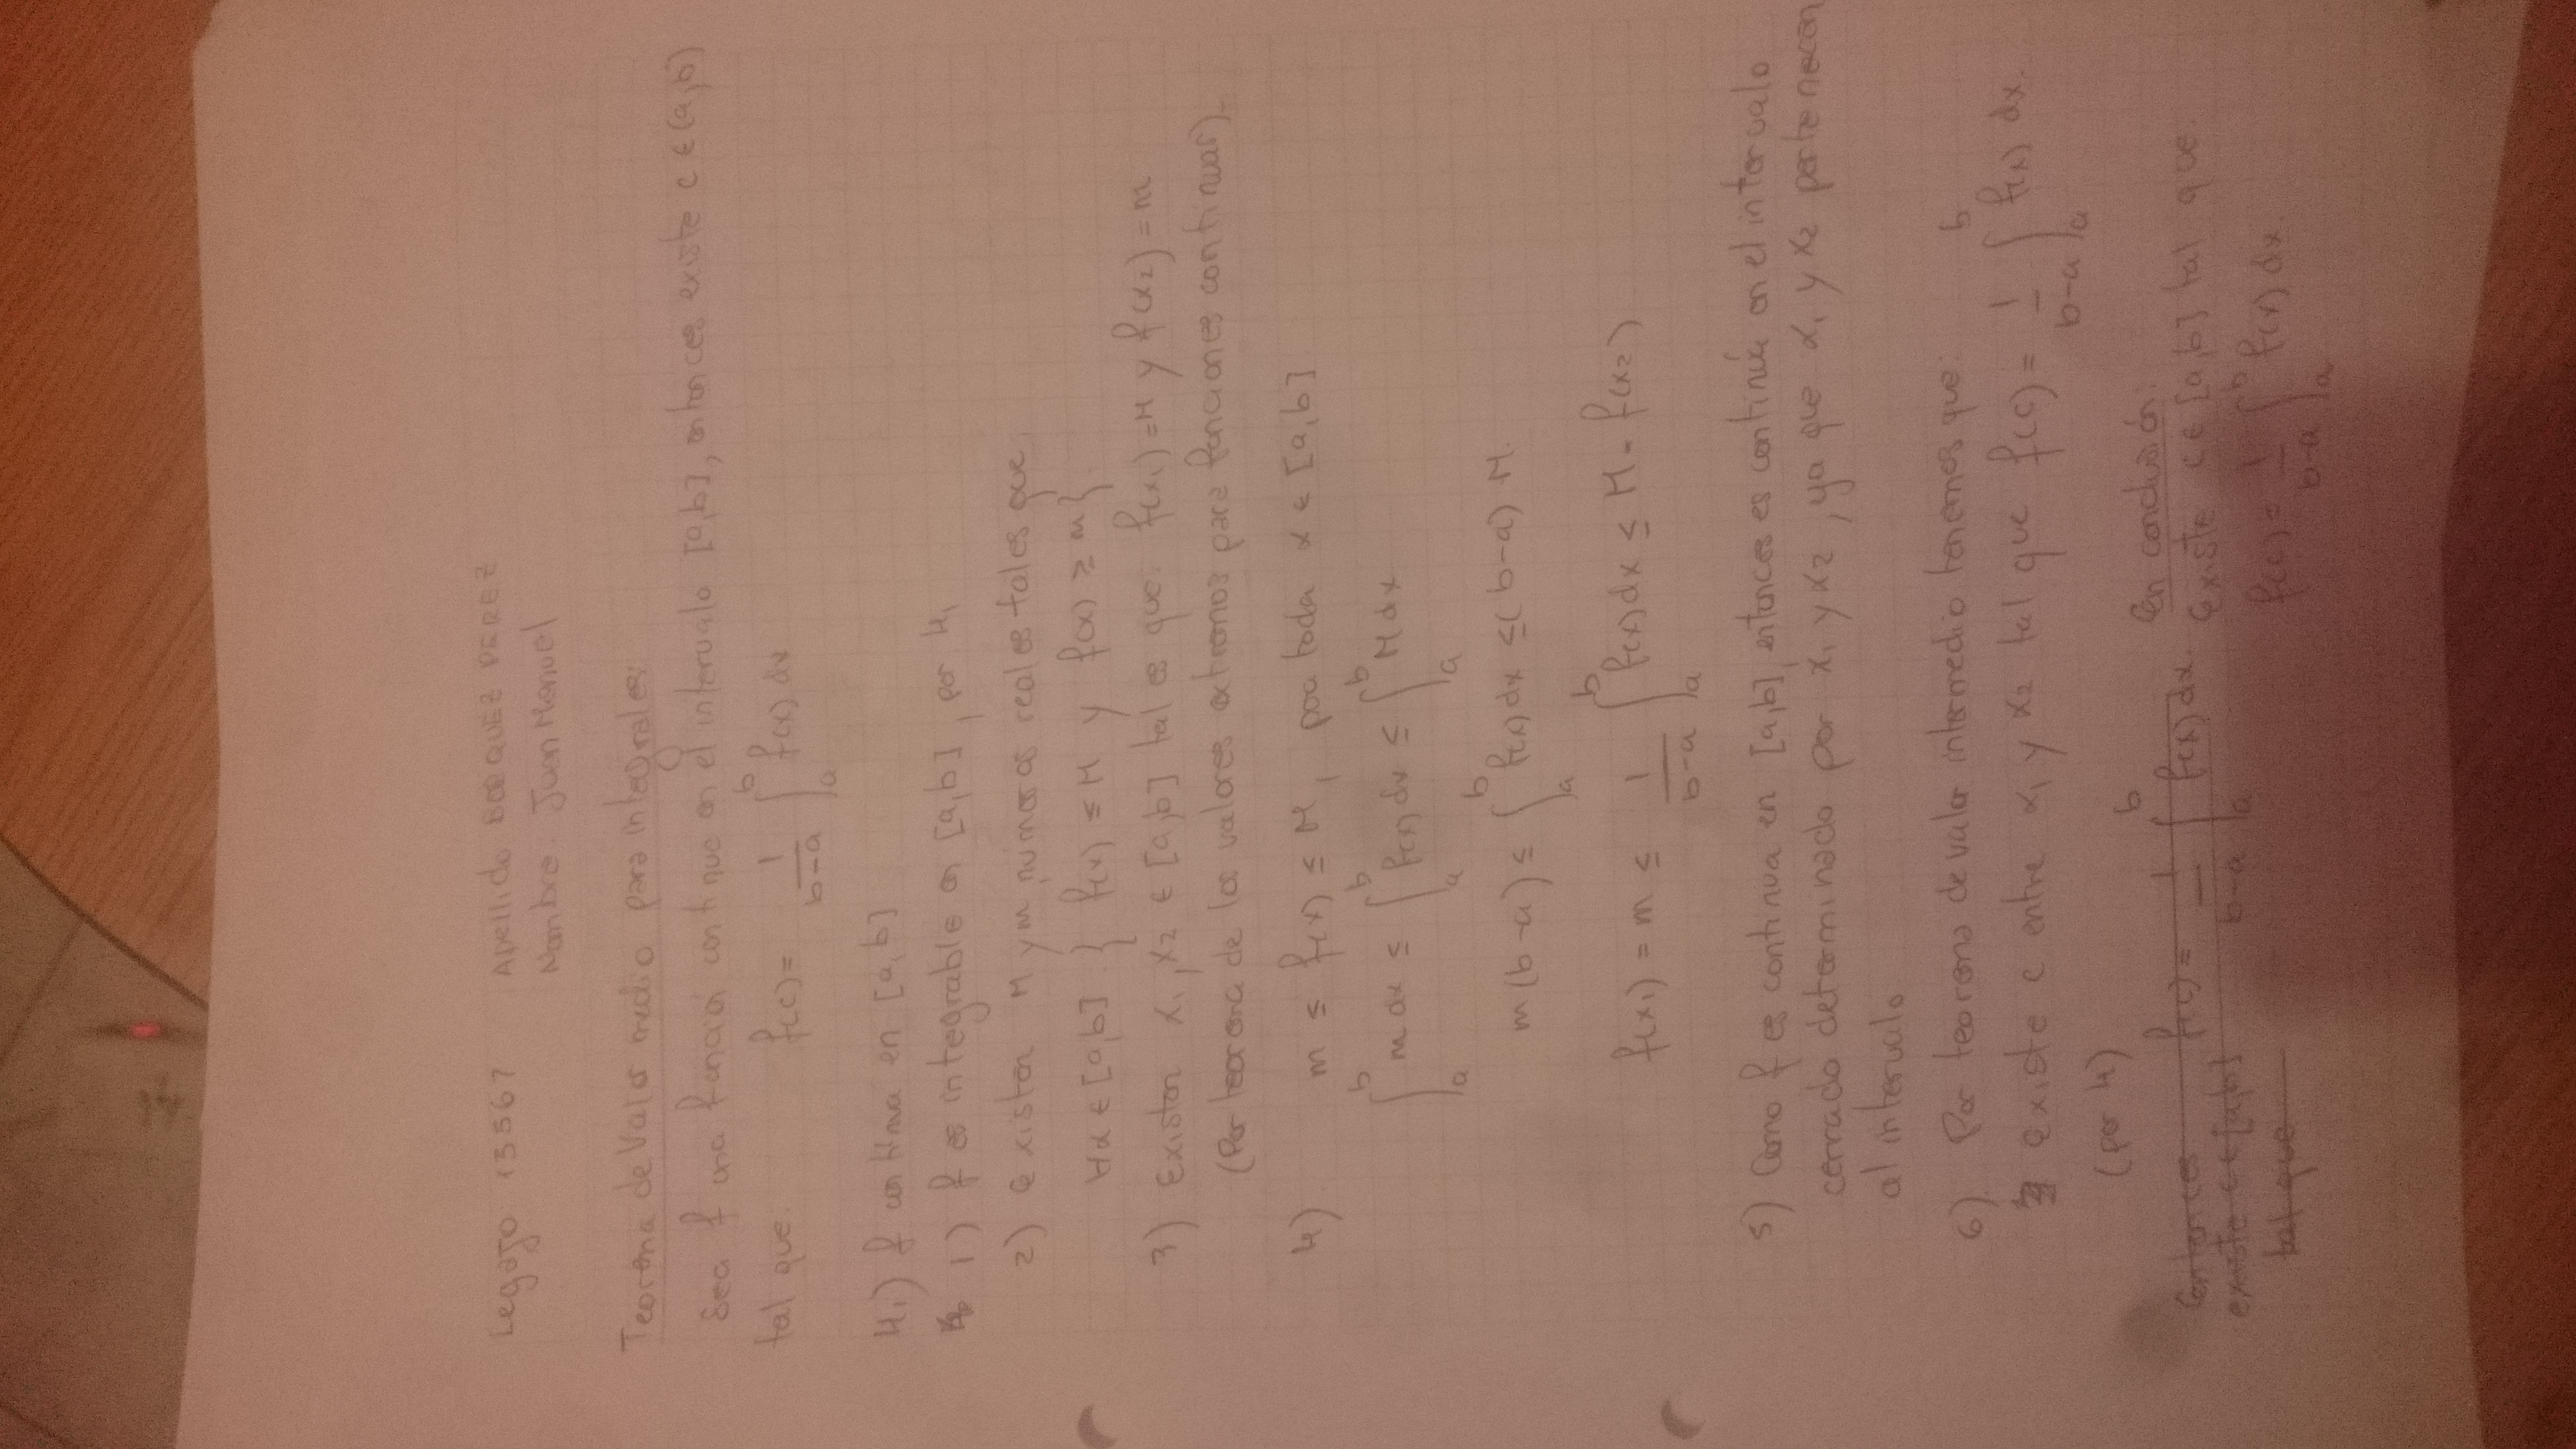 Legajo 13567 Apellido BORQUEZ PEREZ
Nombre: Juan Manuel
Teorema de Valor medio para integrales:
Sea f una función continue en el intervalo [a,b], entonces existe c ∈ (a,b)
tal que: f(c) = 1/(b-a) ∫_a^b f(x) dx
H1) f continua en [a,b]
1) f es integrable en [a,b], por H1
2) existen M y m números reales tales que
∀x ∈ [a,b] } f(x) ≤ M y f(x) ≥ m }
3) Existen x1, x2 ∈ [a,b] tal es que: f(x1) = M y f(x2) = m
(Por teorema de los valores extremos para funciones continuas).
4) m ≤ f(x) ≤ M, para toda x ∈ [a,b]
∫_a^b m dx ≤ ∫_a^b f(x) dx ≤ ∫_a^b M dx
m(b-a) ≤ ∫_a^b f(x) dx ≤ (b-a) M.
f(x1) = m ≤ 1/(b-a) ∫_a^b f(x) dx ≤ M = f(x2)
5) Como f es continua en [a,b], entonces es continua en el intervalo
cerrado determinado por x1 y x2, ya que x1 y x2 pertenecen
al intervalo
6) Por teorema de valor intermedio tenemos que:
existe c entre x1 y x2 tal que f(c) = 1/(b-a) ∫_a^b f(x) dx.
(por 4)
Entonces f(c) = 1/(b-a) ∫_a^b f(x) dx.
existe c ∈ [a,b]
tal que
En conclusión:
Existe c ∈ [a,b] tal que.
f(c) = 1/(b-a) ∫_a^b f(x) dx.